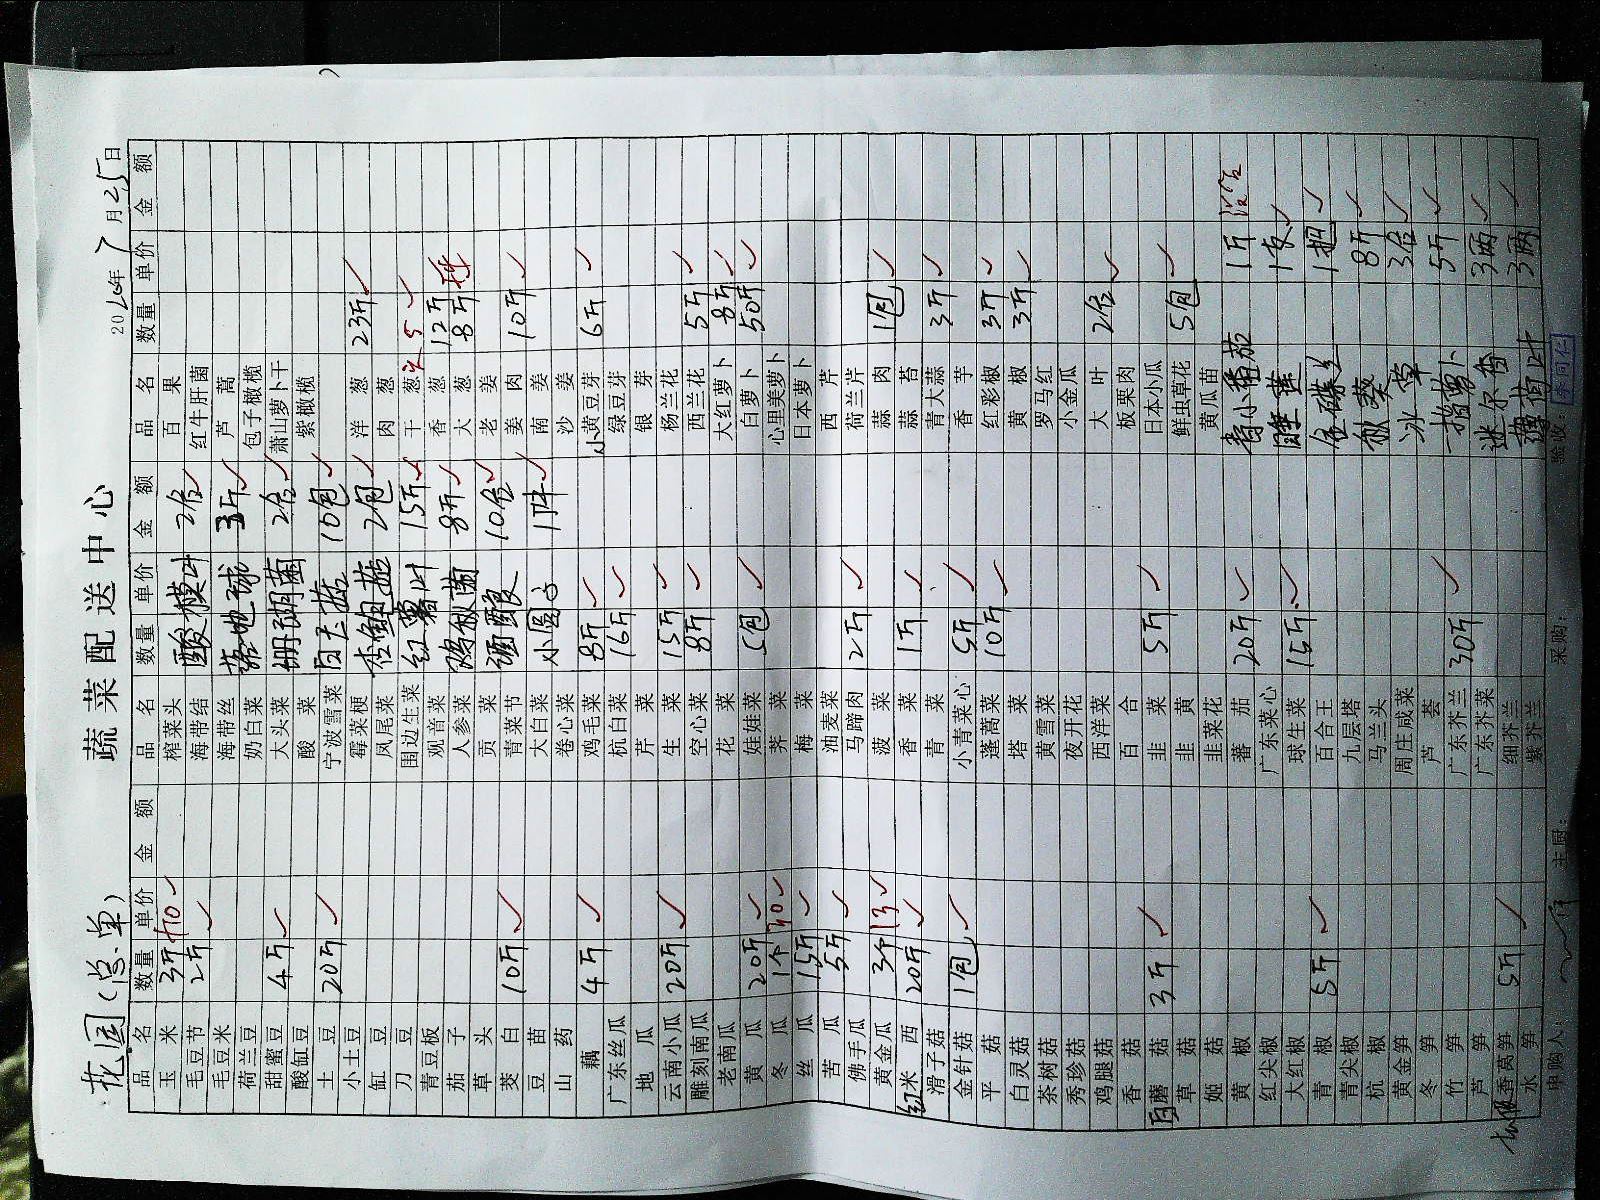 蔬菜配送中心
花园(总单) 2016年7月25日
品名 数量 单价 金额 品名 数量 单价 金额 品名 数量 单价 金额
玉米 3斤 +10 榨菜头 酸模叶 2合 百果
毛豆节 2斤 海带结 红牛肝菌
毛豆米 海带丝 3斤 芦蒿
荷兰豆 奶白菜 包子橄榄
甜蜜豆 4斤 大头菜 珊瑚菌 2合 萧山萝卜干
酸缸豆 酸菜 紫橄榄
土豆 20斤 宁波雪菜 白玉菇 10包
小土豆 霉菜梗 洋葱 23斤
缸豆 凤尾菜 杏鲍菇 2包 肉葱
刀豆 围边生菜 红薯叶 15斤 干葱 5
青豆板 观音菜 香葱 12斤
茄子 人参菜 鸡枞菌 8斤 大葱 8斤
草头 贡菜 酒酿 10合 老姜
茭白 10斤 青菜节 姜肉 10斤
豆苗 大白菜 小圆子 1件 南姜
山药 卷心菜 沙姜
藕 4斤 鸡毛菜 8斤 小黄豆芽 6斤
广东丝瓜 杭白菜 16斤 绿豆芽
地瓜 芹菜 银芽
云南小瓜 20斤 生菜 15斤 杨兰花
雕刻南瓜 空心菜 8斤 西兰花 5斤
老南瓜 花菜 大红萝卜 8斤
黄瓜 20斤 娃娃菜 5包 白萝卜 50斤
冬瓜 1个 30 荠菜 心里美萝卜
丝瓜 15斤 梅菜 日本萝卜
苦瓜 5斤 油麦菜 西芹
佛手瓜 马蹄肉 2斤 荷兰芹
黄金瓜 3个 13 菠菜 蒜肉 1包
红米西 20斤 香菜 1斤 蒜苔
滑子菇 青菜 青大蒜 3斤
金针菇 1包 小青菜心 5斤 香芋
平菇 蓬蒿菜 10斤 红彩椒 3斤
白灵菇 塔菜 黄椒 3斤
茶树菇 黄雪菜 罗马红
秀珍菇 夜开花 小金瓜
鸡腿菇 西洋菜 大叶 2合
香菇 百合 板栗肉
白蘑菇 3斤 韭菜 5斤 日本小瓜
草菇 韭黄 鲜虫草花 5包
姬菇 韭菜花 黄瓜苗
黄椒 蕃茄 20斤 小番茄 1斤 没合
红尖椒 广东菜心 睡莲 1支
大红椒 球生菜 15斤
青椒 5斤 百合王 1把
青尖椒 九层塔 秋葵 8斤
杭椒 马兰头
黄金笋 周庄咸菜 冰草 3合
冬笋 芦荟
竹笋 广东芥兰 30斤 萝卜 5斤
芦笋 广东芥菜
香莴笋 5斤 细芥兰 迷尔香 3两
水笋 紫芥兰 薄荷叶 3两
申购人: 主厨: 采购: 验收: